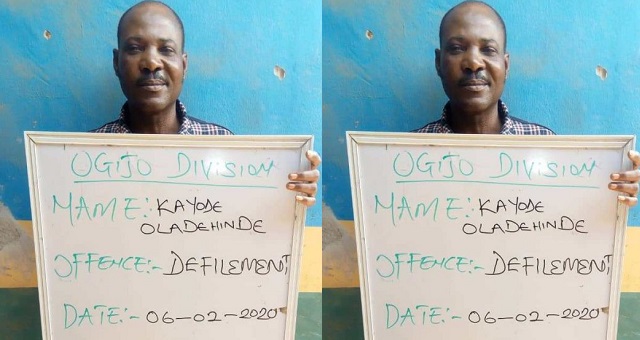 OGIJO DIVISION
MAME:- KAYODE
OLADEHINDE
OFFENCE:- DEFILEMENT
DATE:- 06-02-2020
OGIJO DIVISION
MAME:- KAYODE
OLADEHINDE
OFFENCE:- DEFILEMENT
DATE:- 06-02-2020